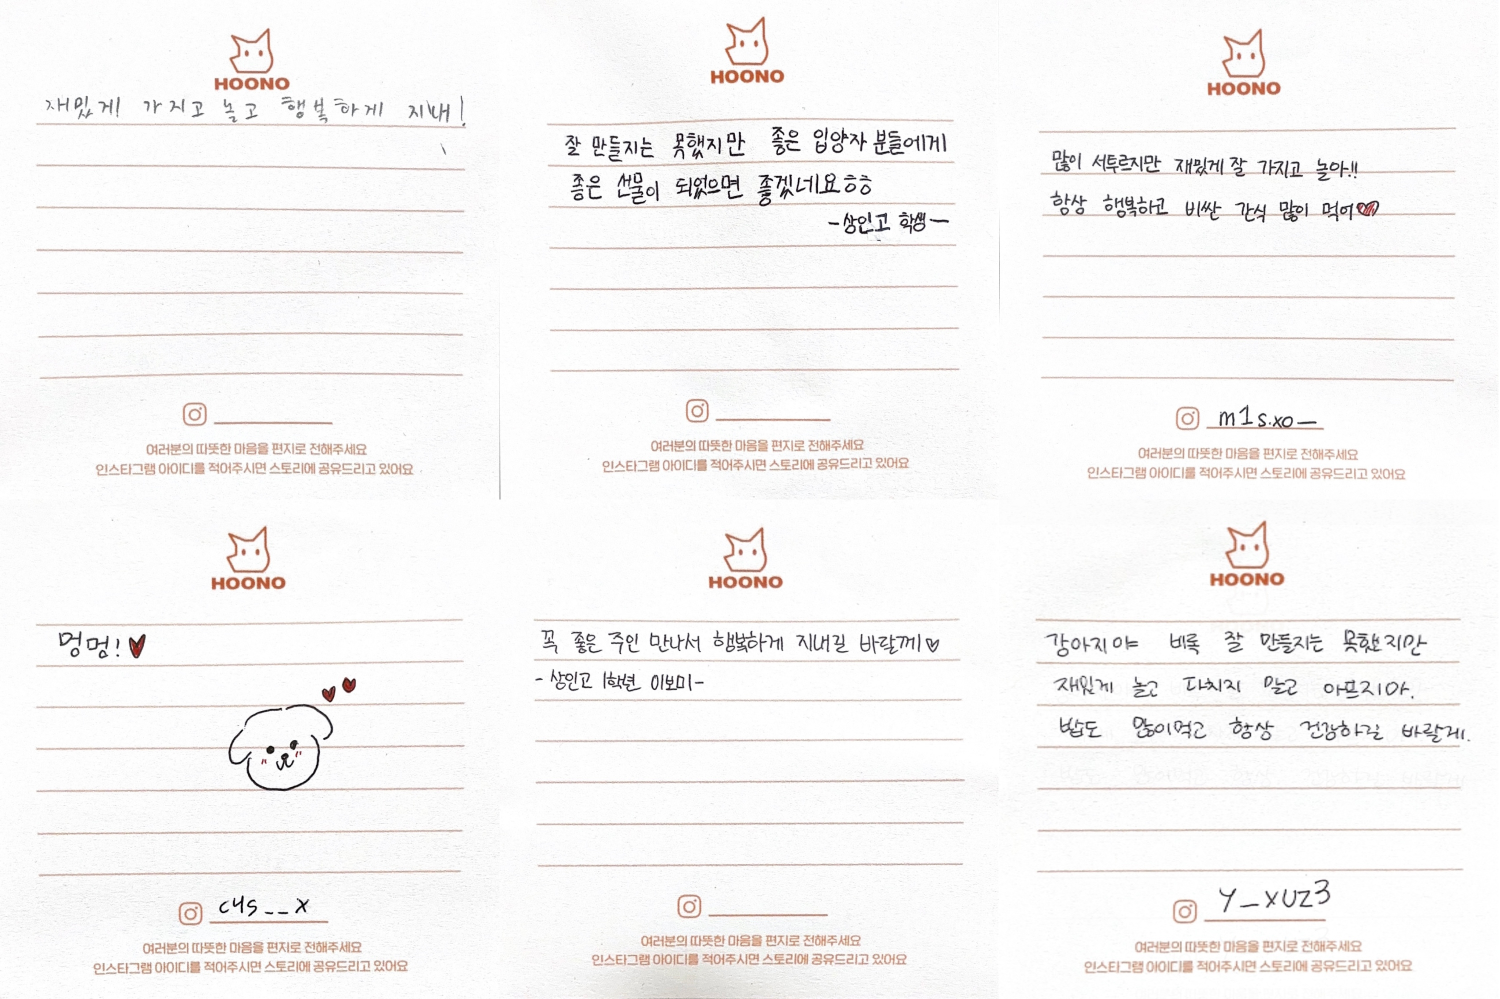 HOONO
재밌게! 가지고 놀고 행복하게 지내!
여러분의 따뜻한 마음을 편지로 전해주세요
인스타그램 아이디를 적어주시면 스토리에 공유드리고 있어요
HOONO
잘 만들지는 못했지만 좋은 입양자 분들에게
좋은 선물이 되었으면 좋겠네요ㅎㅎ
-상인고 학생-
여러분의 따뜻한 마음을 편지로 전해주세요
인스타그램 아이디를 적어주시면 스토리에 공유드리고 있어요
HOONO
많이 서투르지만 재밌게 잘 가지고 놀아!!
항상 행복하고 비싼 간식 많이 먹어♥
m1s.xo_
여러분의 따뜻한 마음을 편지로 전해주세요
인스타그램 아이디를 적어주시면 스토리에 공유드리고 있어요
HOONO
멍멍!♥
c4s__x
여러분의 따뜻한 마음을 편지로 전해주세요
인스타그램 아이디를 적어주시면 스토리에 공유드리고 있어요
HOONO
꼭 좋은 주인 만나서 행복하게 지내길 바랄께!♡
-상인고 1학년 이보미-
여러분의 따뜻한 마음을 편지로 전해주세요
인스타그램 아이디를 적어주시면 스토리에 공유드리고 있어요
HOONO
강아지야 비록 잘 만들지는 못했지만
재밌게 놀고 다치지 말고 아프지마.
밥도 많이먹고 항상 건강하길 바랄게.
y_xuz3
여러분의 따뜻한 마음을 편지로 전해주세요
인스타그램 아이디를 적어주시면 스토리에 공유드리고 있어요